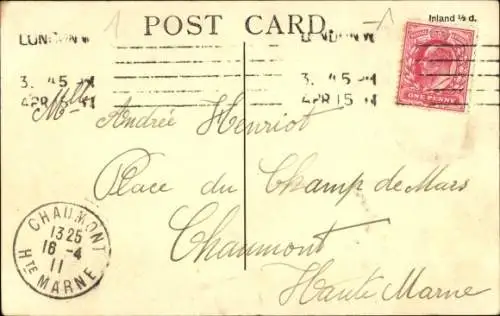 POST CARD.
Inland ½ d.
LONDON W
3. 45 PM
APR 15 11
LONDON W
3. 45 PM
APR 15 11
ONE PENNY
Mlle Andrée Henriot
Place du Champ de Mars
Chaumont
Haute Marne
CHAUMONT
13 25
16 - 4
11
HTE MARNE